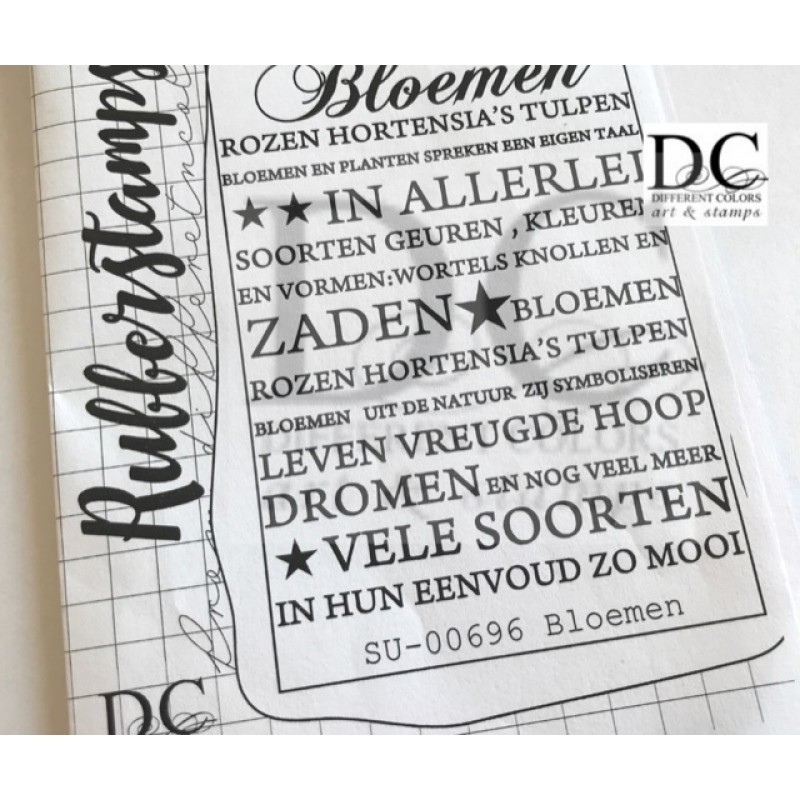 Bloemen
ROZEN HORTENSIA'S TULPEN
BLOEMEN EN PLANTEN SPREKEN EEN EIGEN TAAL
★ ★ IN ALLERLEI
SOORTEN GEUREN , KLEUREN
EN VORMEN:WORTELS KNOLLEN EN
ZADEN ★ BLOEMEN
ROZEN HORTENSIA'S TULPEN
BLOEMEN UIT DE NATUUR ZIJ SYMBOLISEREN
LEVEN VREUGDE HOOP
DROMEN EN NOG VEEL MEER
★ VELE SOORTEN
IN HUN EENVOUD ZO MOOI
SU-00696 Bloemen
Rubberstamps
DC
DC
DIFFERENT COLORS
art & stamps
DC
DIFFERENT COLORS
art & stamps